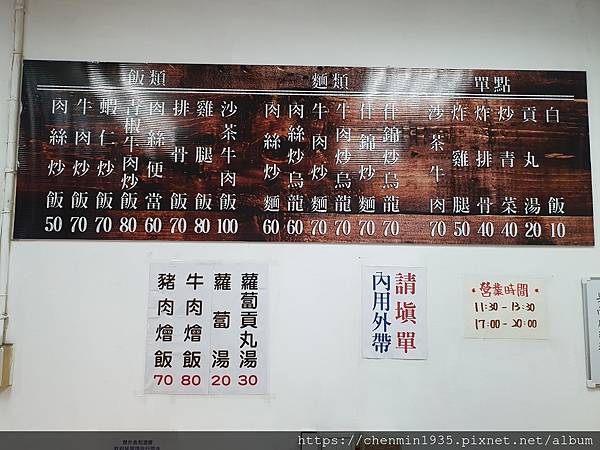 飯類
肉絲炒飯 50
牛肉炒飯 70
蝦仁炒飯 70
青椒牛肉炒飯 80
肉絲便當 60
排骨飯 70
雞腿飯 80
沙茶牛肉飯 100
麵類
肉絲炒麵 60
肉絲炒烏龍 60
牛肉炒麵 70
牛肉炒烏龍 70
什錦炒麵 70
什錦炒烏龍 70
單點
沙茶牛肉 70
炸雞腿 50
炸排骨 40
炒青菜 40
貢丸湯 20
白飯 10
豬肉燴飯 70
牛肉燴飯 80
蘿蔔湯 20
蘿蔔貢丸湯 30
請填單
內用外帶
營業時間
11:30 - 13:30
17:00 - 20:00
https://chenmin1935.pixnet.net/album